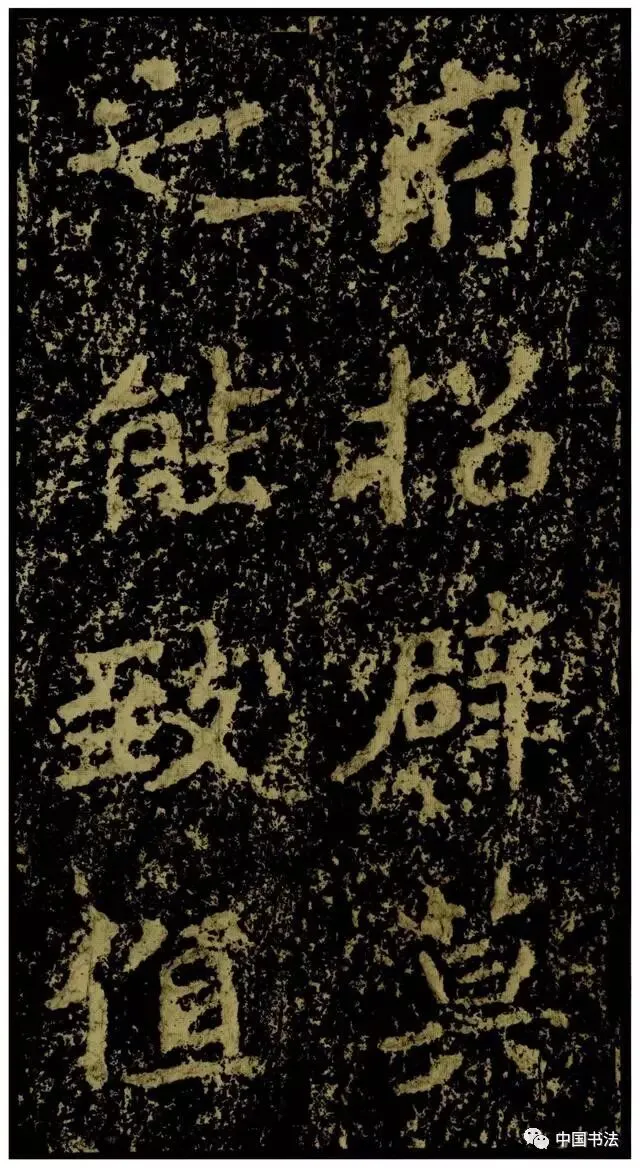 府招辟莫
之能致值
中国书法